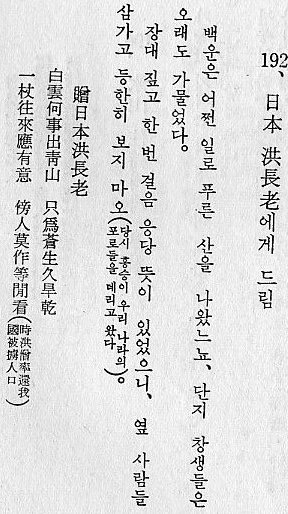 192、日本 洪長老에게 드림
백운은 어쩐 일로 푸른 산을 나왔느뇨、단지 창생들은
오래도 가물었다。
장대 짚고 한 번 걸음 응당 뜻이 있었으니、옆 사람들
삼가고 등한히 보지 마오(당시 홍승이 우리 나라의 포로들을 데리고 왔다)。
贈日本洪長老
白雲何事出靑山 只爲蒼生久旱乾
一杖往來應有意 傍人莫作等閒看(時洪僧率還我國被擄人口)